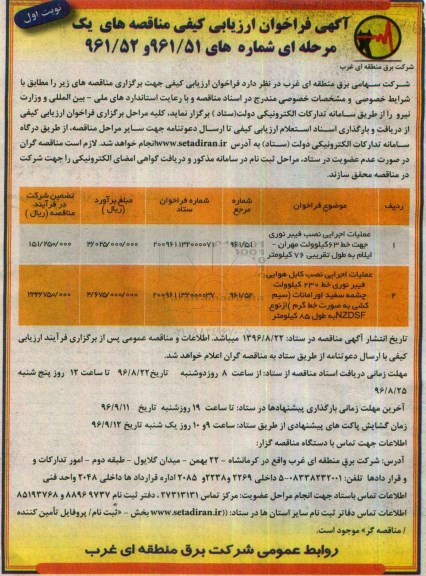 نوبت اول
آگهی فراخوان ارزیابی کیفی مناقصه های یک
مرحله ای شماره های ۹۶۱/۵۱و ۹۶۱/۵۲
شرکت برق منطقه ای غرب
شرکت سهامی برق منطقه ای غرب در نظر دارد فراخوان ارزیابی کیفی جهت برگزاری مناقصه های زیر را مطابق با
شرایط خصوصی و مشخصات خصوصی مندرج در اسناد مناقصه و با رعایت استاندارد های ملی - بین المللی و وزارت
نیرو را از طریق سامانه تدارکات الکترونیکی دولت(ستاد) برگزار نماید، کلیه مراحل برگزاری فراخوان ارزیابی کیفی
از دریافت و بارگذاری اسناد استعلام ارزیابی کیفی تا ارسال دعوتنامه جهت سایر مراحل مناقصه، از طریق درگاه
سامانه تدارکات الکترونیکی دولت (ستاد) به آدرس www.setadiran.ir انجام خواهد شد. لازم است مناقصه گران
در صورت عدم عضویت در ستاد، مراحل ثبت نام در سامانه مذکور و دریافت گواهی امضای الکترونیکی را جهت شرکت
در مناقصه محقق سازند.
ردیف موضوع فراخوان شماره مرجع شماره فراخوان ستاد مبلغ برآورد (ریال) تضمین شرکت در فرآیند مناقصه (ریال)
۱ عملیات اجرایی نصب فیبر نوری جهت خط ۶۳کیلوولت مهران - ایلام به طول تقریبی ۷۶ کیلومتر ۹۶۱/۵۱ ۲۰۰۹۶۱۱۳۲۰۰۰۰۷۱ ۳/۰۲۵/۰۰۰/۰۰۰ ۱۵۱/۲۵۰/۰۰۰
۲ عملیات اجرایی نصب کابل هوایی فیبر نوری خط ۲۳۰ کیلوولت چشمه سفید اورامانات (سیم کشی به صورت خط گرم) از نوع NZDSF به طول ۸۵ کیلومتر ۹۶۱/۵۲
تاریخ انتشار آگهی مناقصه در ستاد: ۱۳۹۶/۸/۲۲ میباشد. اطلاعات و مناقصه عمومی پس از برگزاری فرآیند ارزیابی
کیفی با ارسال دعوتنامه از طریق ستاد به مناقصه گران اعلام خواهد شد.
مهلت زمانی دریافت اسناد مناقصه از ستاد: از ساعت ۸ روز دوشنبه تاریخ ۹۶/۸/۲۲ تا ساعت ۱۲ روز پنج شنبه
۹۶/۸/۲۵
آخرین مهلت زمانی بارگذاری پیشنهادها در ستاد: تا ساعت ۱۹ روز شنبه تاریخ ۹۶/۹/۱۱
زمان گشایش پاکت های پیشنهادی از طریق ستاد: ساعت ۹و ۱۰ روز یک شنبه تاریخ ۹۶/۹/۱۲
اطلاعات جهت تماس با دستگاه مناقصه گزار:
آدرس: شرکت برق منطقه ای غرب واقع در کرمانشاه - ۲۲ بهمن - میدان گلایول - طبقه دوم - امور تدارکات و
و قرار دادها تلفن: ۵-۰۸۳۳۸۲۳۲۰۰۱ داخلی ۲۲۶۹ و ۲۲۳۸و ۲۰۸۵ اداره قرارداد ها داخلی ۲۰۴۸ واحد فنی
اطلاعات تماس باستاد جهت انجام مراحل عضویت: مرکز تماس ۲۷۳۱۳۱۳۱. دفتر ثبت نام ۸۸۹۶۹۷۳۷ و ۸۵۱۹۳۷۶۸
اطلاعات تماس دفاتر ثبت نام سایر استان ها در ستاد: ((www.setadiran.ir)) بخش - «ثبت نام/ پروفایل تأمین کننده
/ مناقصه گر» موجود است.
روابط عمومی شرکت برق منطقه ای غرب